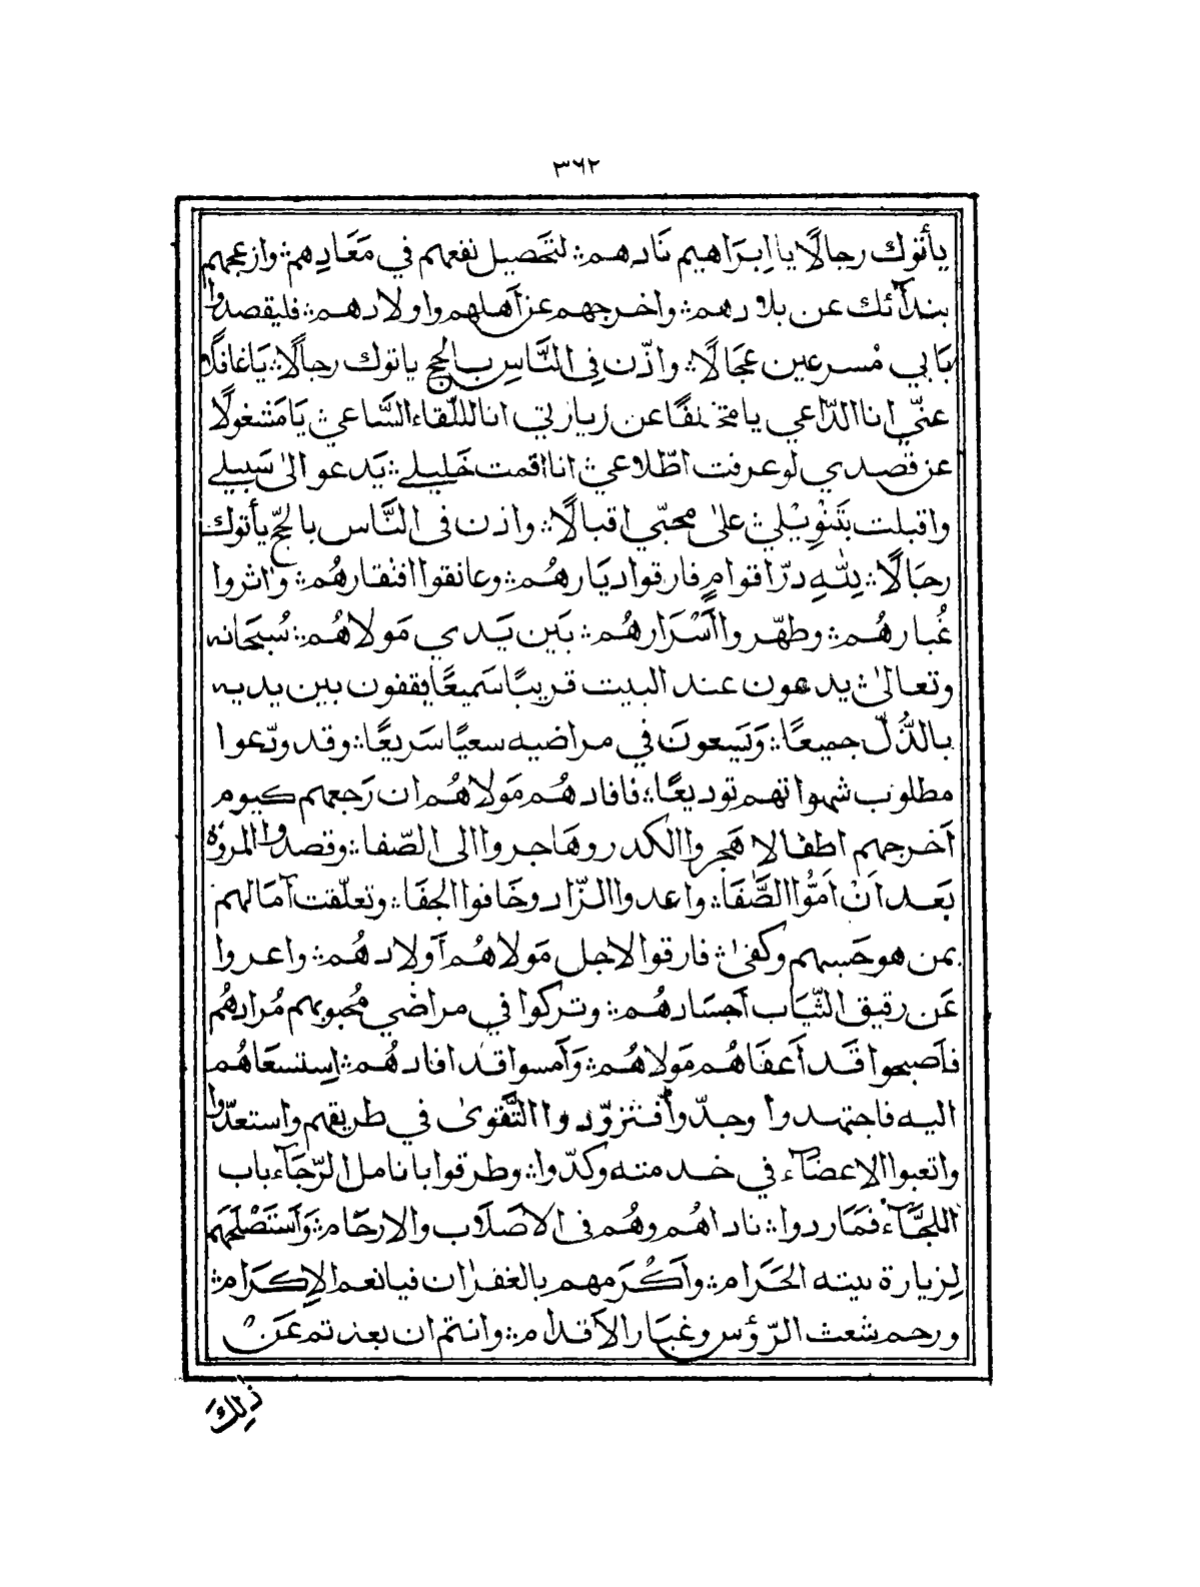 ٣٦٢
يأتوك رجالًا يا اِبرَاهيم نَادهم؞ لتحَصيل نفعهم في مَعَادِهم؞ وازعجهم
بندآئك عن بلادهم؞ واخرجهم عن اَهلهم واولادهم؞ فليقصدوا
بَابي مُسرعين عجَالًا؞ واذّن فِى النَّاسِ بالحج ياتوك رجالًا؞ يَاغافلًا
عنّي انا الدّاعي يا متخلفًا عن زيارتي انا للّقاء السَّاعي؞ يَا مَشغولًا
عن قصدي لو عرفت اطّلاعي؞ انا اقمت خَليلي؞ يَدعو الىٰ سَبيلي
واقبلت بتَنْوِيْلي؞ علىٰ محبّي اقبالًا؞ واذن فى النَّاس بالحجّ يأتوك
رجَالًا؞ لِلّٰهِ درّ اقوامٍ فارقوا ديَارهُم؞ وعانقوا افتقارهُم؞ واٰثروا
غُبارهُم؞ وطهّروا اَسْرَارهُم؞ بَين يَدي مَولاهُم؞ سُبحَانه
وتعالىٰ؞ يدعون عند البيت قريبًا سَميعًا يقفون بين يديه
بالذُّلّ جميعًا؞ وَيَسعونَ في مراضيه سعيًا سَريعًا؞ وقد ودّعوا
مطلوب شهواتهم توديعًا؞ فافادهُم مَولاهُم ان رَجعهم كيوم
اَخرجهم اطفالا هَجروا الكدر وهَاجروا الى الصّفا؞ وقصدوا المروَة
بَعد اَنْ اَمُّوا الصَّفَا؞ واعدوا الزّاد وخَافوا الجفَا؞ وتعلّقت آمَالهم
بمن هو حَسبهم وكفىٰ؞ فارقوا لاجل مَولاهُم اَولادهُم؞ واعروا
عَن رقيق الثّيَاب اَجسَادهُم؞ وتركوا في مراضي مُحبوبهم مُرادهُم
فاَصبحوا قَد اَعفَاهُم مَولاهُم؞ وَاَمسوا قد افادهُم؞ اِستسعَاهُم
اليه فاجتهدوا وجدّوا فتزوّدوا التَّقوىٰ في طريقهم واستعدّوا
واتعبوا الاعضآء في خدمته وكدّوا؞ وطرقوا بانامل الرّجَاء باب
اللجَّآء فمَا ردوا؞ ناداهُم وهُم فى الاصَلاَب والارحَام؞ وَاَستَصْلَحَهم
لِزيارة بيته الحَرام؞ واَكْرَمهم بالغفران فيا نعم الاِكرَام؞
ورحم شعث الرّؤس وغبَار الاَقدام؞ وانتم ان بعدتم عَنْ
ذٰلِكَ